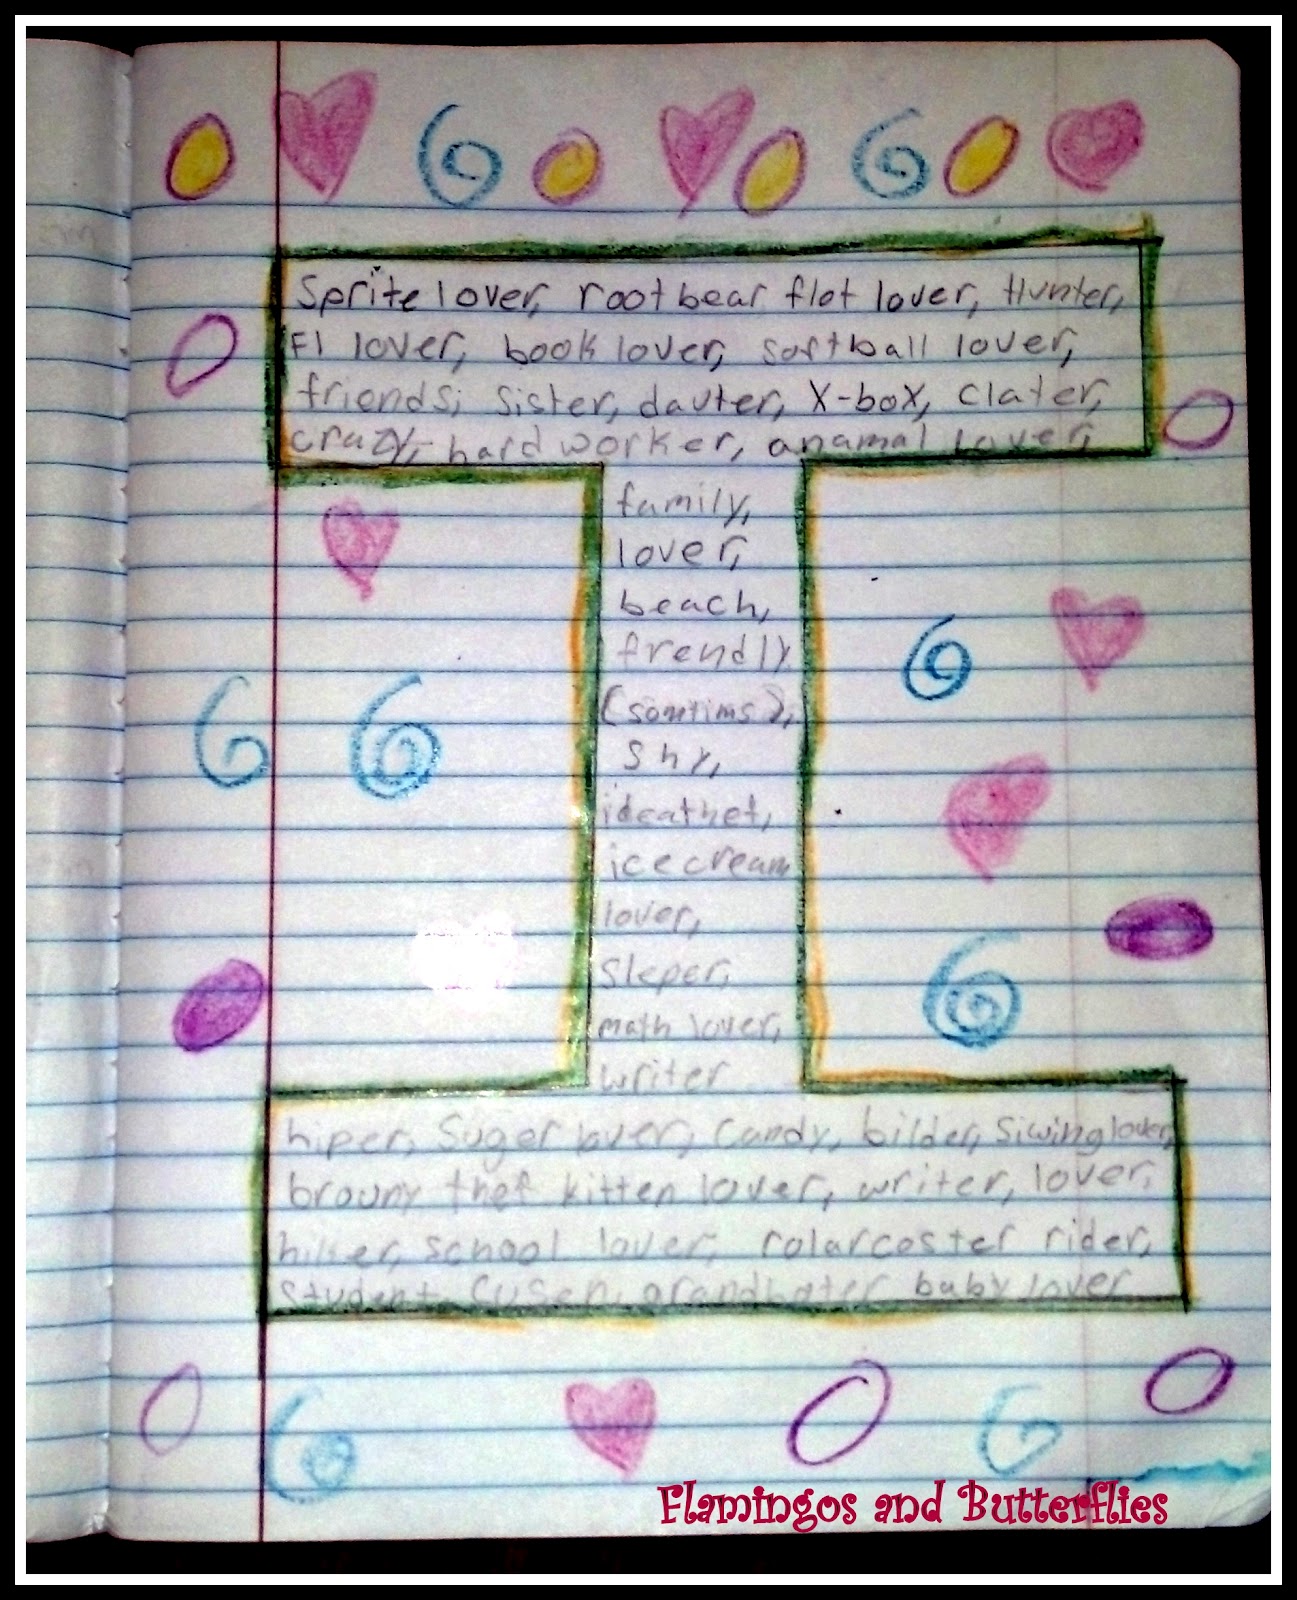 Sprite lover, root bear flot lover, Hunter,
Fl lover, book lover, softball lover,
friends, sister, dauter, X-box, clater,
crazy, hard worker, anamal lover,
family,
lover,
beach,
frendly
(somtims),
shy,
ideathet,
icecream
lover,
Sleper,
math lover,
writer
hiper, Suger lover, Candy, bilder, Siwing lover,
brouny thef kitten lover, writer, lover,
hiker, school lover, rolarcoster rider,
student, Cusen, baby lover
Flamingos and Butterflies